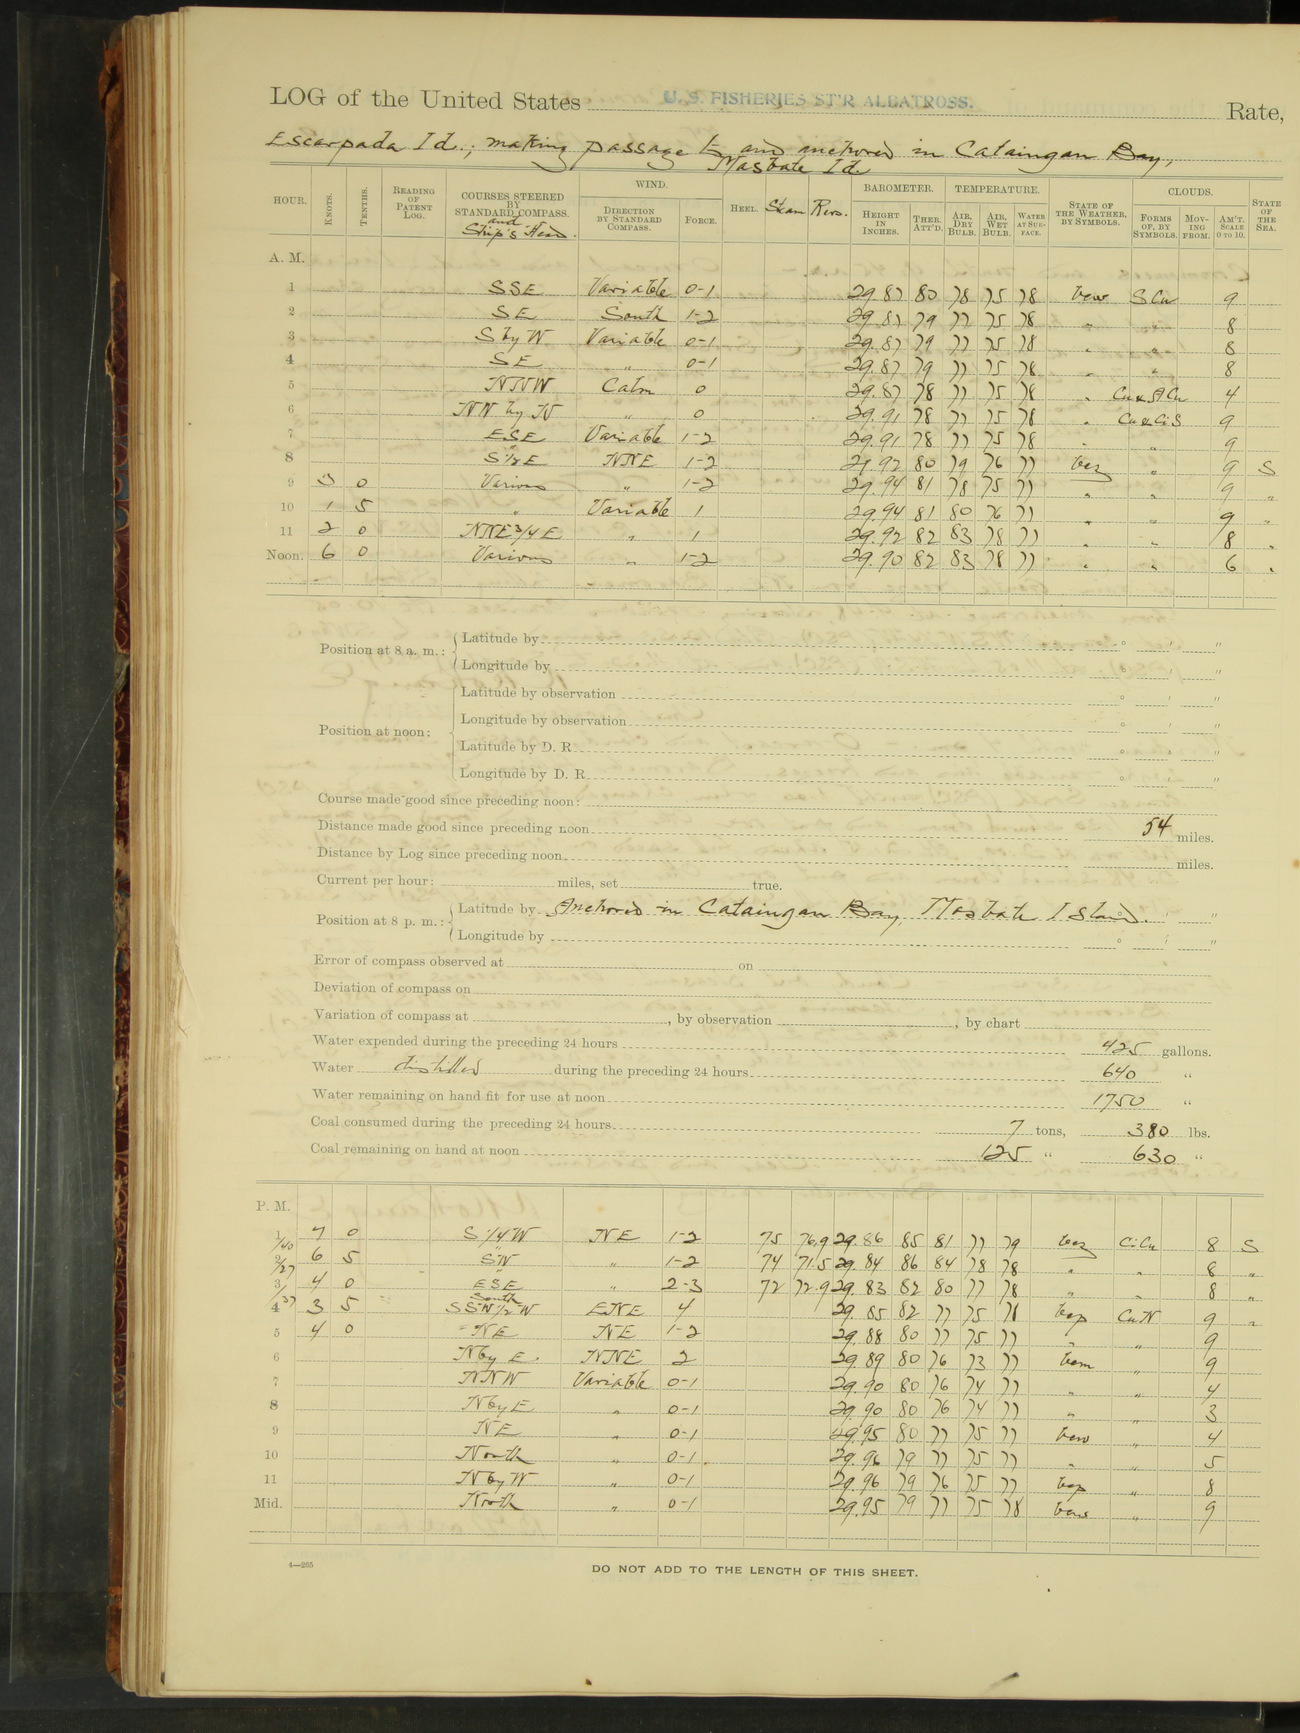 LOG of the United States U. S. FISHERIES ST'R ALBATROSS. Rate,
Escarpada Id.; making passage to and anchored in Cataingan Bay,
Masbate Id.
HOUR. KNOTS. TENTHS. READING OF PATENT LOG. COURSES STEERED BY STANDARD COMPASS. and Ship's Head. WIND. DIRECTION BY STANDARD COMPASS. FORCE. HEEL. Steam Revs. BAROMETER. HEIGHT IN INCHES. THER. ATT'D. TEMPERATURE. AIR, DRY BULB. AIR, WET BULB. WATER AT SURFACE. STATE OF THE WEATHER, BY SYMBOLS. CLOUDS. FORMS OF, BY SYMBOLS. MOVING FROM. AM'T. SCALE 0 TO 10. STATE OF THE SEA.
A. M.
1 SSE Variable 0-1 29.87 80 78 75 78 bcw S Cu 9
2 SE South 1-2 29.87 79 77 75 78 " " 8
3 S by W Variable 0-1 29.87 79 77 75 78 " " 8
4 SE " 0-1 29.87 79 77 75 78 " " 8
5 NNW Calm 0 29.87 78 77 75 78 " Cu & A Cu 4
6 NW by N " 0 29.91 78 77 75 78 " Cu & Ci S 9
7 ESE Variable 1-2 29.91 78 77 75 78 " " 9
8 S 1/2 E NNE 1-2 29.92 80 79 76 77 bcz " 9 S
9 3 0 Various " 1-2 29.94 81 78 75 77 " " 9 "
10 1 5 " Variable 1 29.94 81 80 76 77 " " 9 "
11 2 0 NNE 3/4 E " 1 29.92 82 83 78 77 " " 8 "
Noon. 6 0 Various " 1-2 29.90 82 83 78 77 " " 6 "
Position at 8 a. m.: Latitude by ° ' "
Longitude by ° ' "
Position at noon: Latitude by observation ° ' "
Longitude by observation ° ' "
Latitude by D. R. ° ' "
Longitude by D. R. ° ' "
Course made good since preceding noon:
Distance made good since preceding noon 54 miles.
Distance by Log since preceding noon miles.
Current per hour: miles, set true.
Position at 8 p. m.: Latitude by Anchored in Cataingan Bay, Masbate Island. ' "
Longitude by ° ' "
Error of compass observed at on
Deviation of compass on
Variation of compass at , by observation , by chart
Water expended during the preceding 24 hours 425 gallons.
Water distilled during the preceding 24 hours 640 "
Water remaining on hand fit for use at noon 1750 "
Coal consumed during the preceding 24 hours 7 tons, 380 lbs.
Coal remaining on hand at noon 125 " 630 "
P. M.
1 7 0 S 1/4 W NE 1-2 75 76.9 29.86 85 81 77 79 bcz Ci Cu 8 S
2 6 5 SW " 1-2 74 71.5 29.84 86 84 78 78 " " 8 "
3 4 0 ESE " 2-3 72 72.9 29.83 82 80 77 78 " " 8 "
4 3 5 South SSW 1/2 W ENE 4 29.85 82 77 75 78 bcp Cu N 9 "
5 4 0 NE NE 1-2 29.88 80 77 75 77 " " 9
6 N by E NNE 2 29.89 80 76 73 77 bcm " 9
7 NNW Variable 0-1 29.90 80 76 74 77 " " 4
8 N by E " 0-1 29.90 80 76 74 77 " " 3
9 NE " 0-1 29.95 80 77 75 77 bcw " 4
10 North " 0-1 29.96 79 77 75 77 " " 5
11 N by W " 0-1 29.96 79 76 75 77 bcp " 8
Mid. North " 0-1 29.95 79 77 75 78 bcw " 9
4—265 DO NOT ADD TO THE LENGTH OF THIS SHEET.